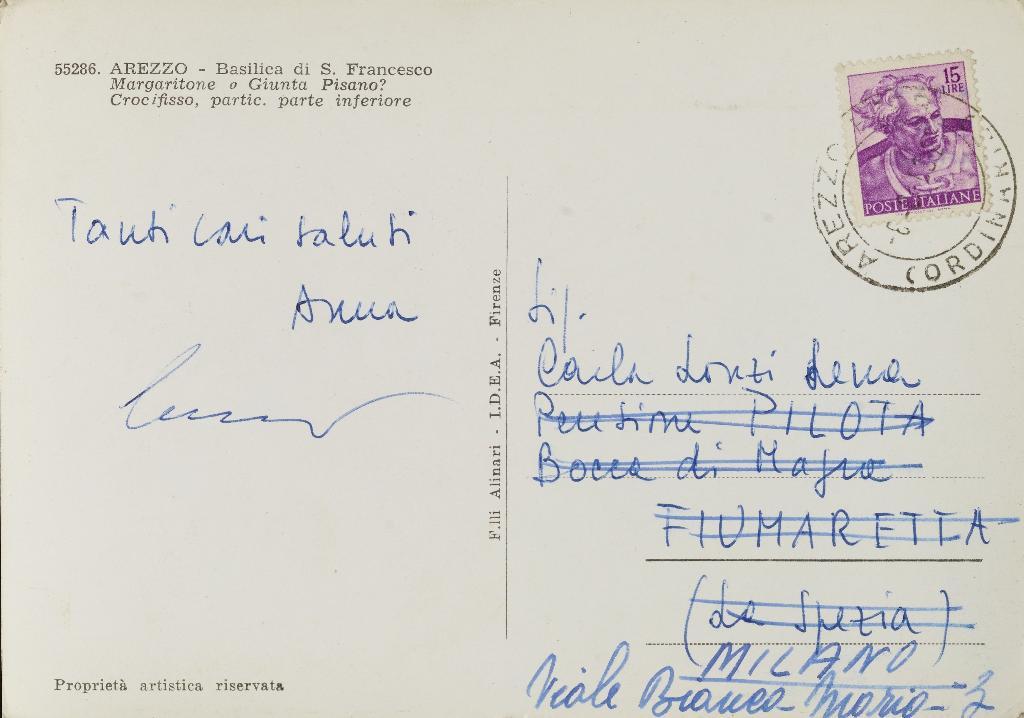 55286. AREZZO - Basilica di S. Francesco
Margaritone o Giunta Pisano?
Crocifisso, partic. parte inferiore
15
LIRE
POSTE ITALIANE
AREZZO
(ORDINARIE
Tanti cari saluti
Anna
F.lli Alinari - I.D.E.A. - Firenze
Sig.
Carla Lonzi Lena
Pensione PILOTA
Bocca di Magra
FIUMARETTA
(La Spezia)
MILANO
Viale Bianca Maria - 3
Proprietà artistica riservata